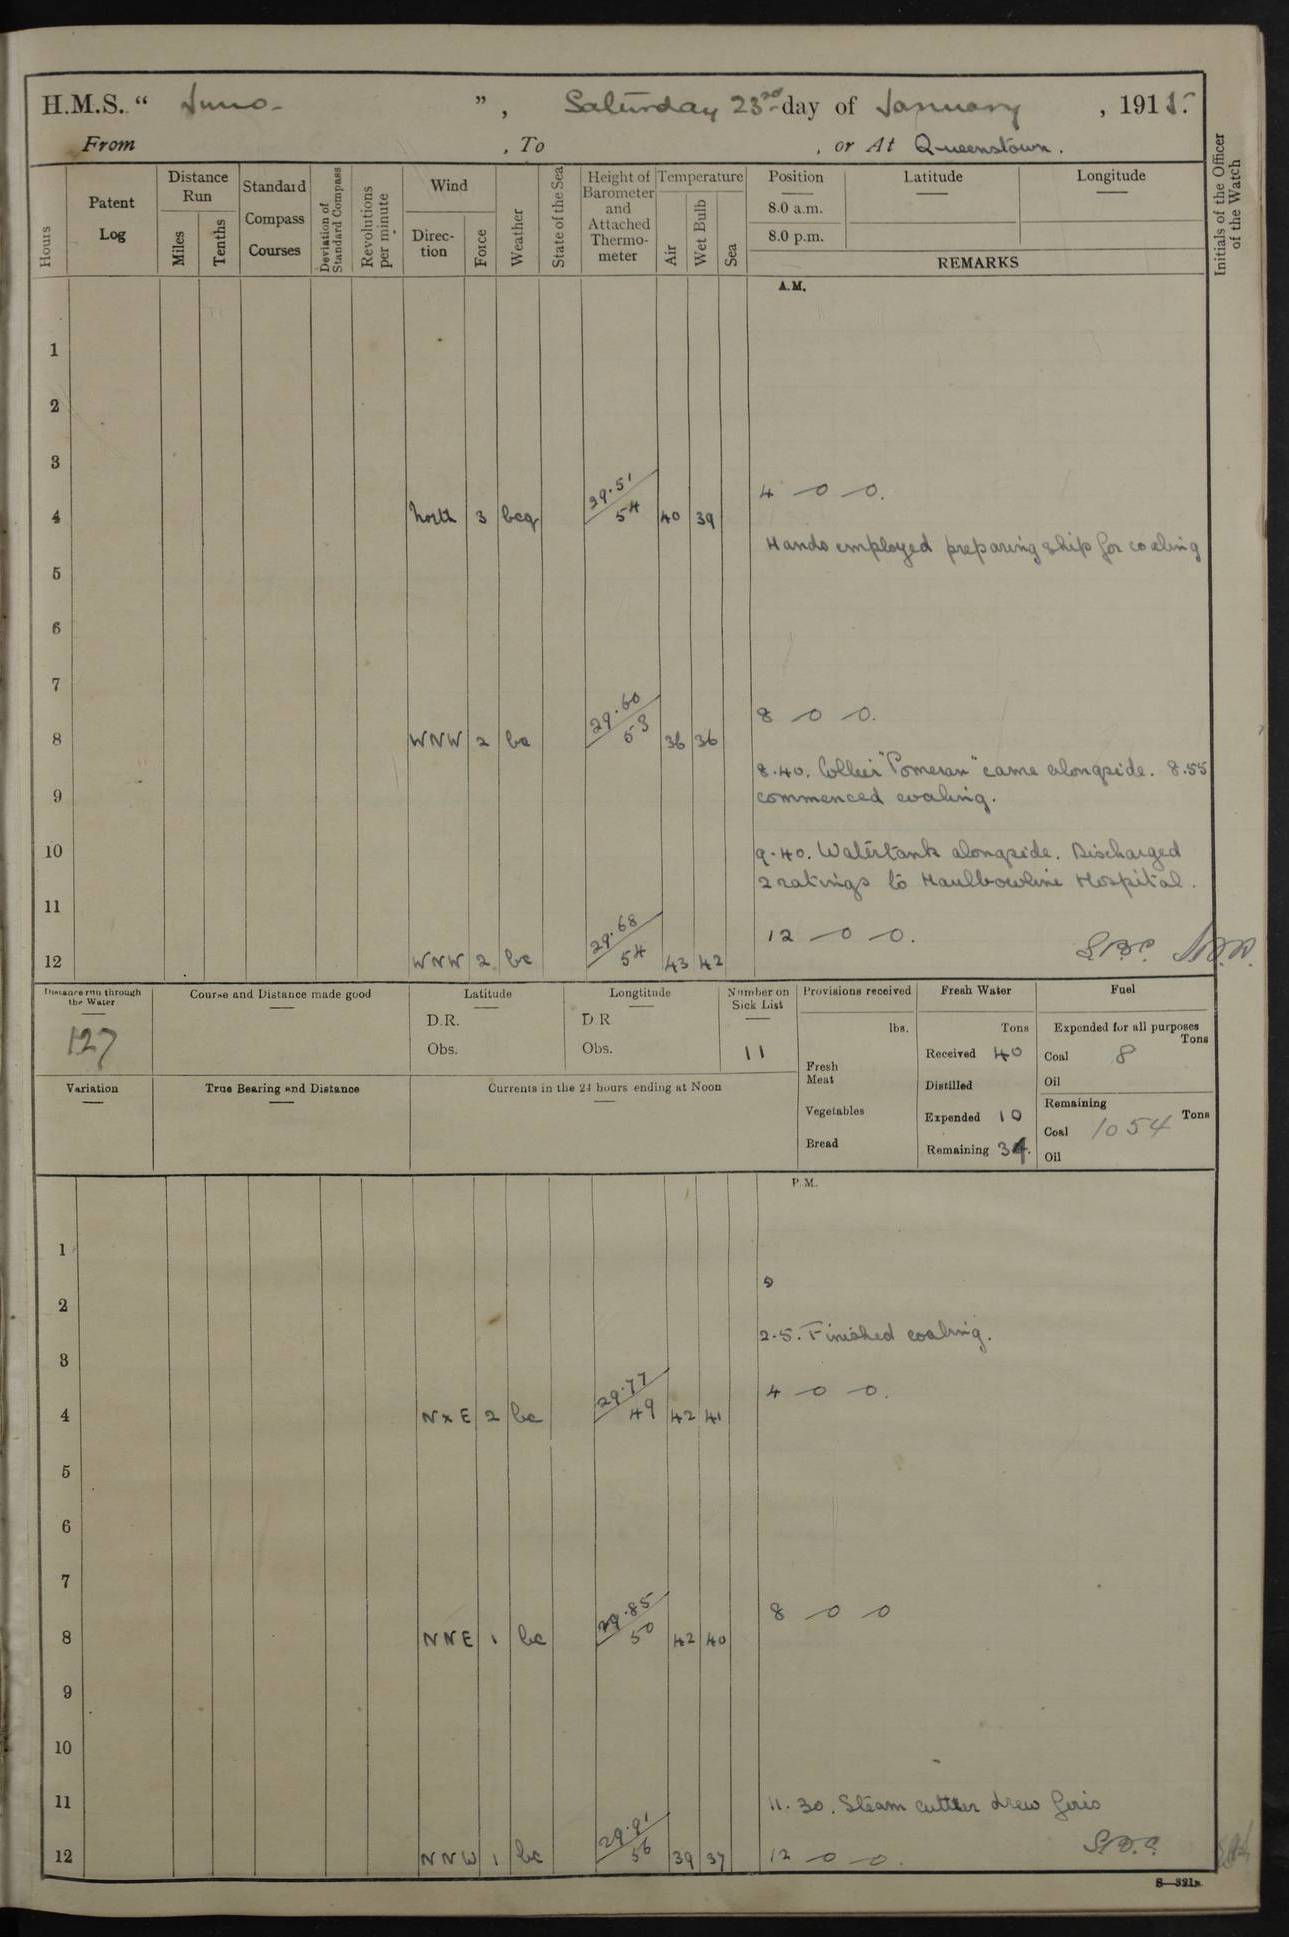 H.M.S. “ Juno - ” , Saturday 23rd day of January , 1915.
From , To , or At Queenstown.
Hours
Patent Log
Distance Run
Miles
Tenths
Standard Compass Courses
Deviation of Standard Compass
Revolutions per minute
Wind
Direction
Force
Weather
State of the Sea
Height of Barometer and Attached Thermometer
Temperature
Air
Wet Bulb
Sea
Position
8.0 a.m.
8.0 p.m.
Latitude
Longitude
REMARKS
Initials of the Officer of the Watch
A.M.
1
2
3
4 — o — o.
4 North 3 bcq 29.51 54 40 39
Hands employed preparing ship for coaling
5
6
7
8 — o — o.
8 WNW 2 bc 29.60 53 36 36
8.40. Collier "Pomeran" came alongside. 8.55
9 commenced coaling.
10 9.40. Watertank alongside. Discharged
2 ratings to Haulbowline Hospital.
11
12 — o — o.
12 WNW 2 bc 29.68 54 43 42
Distance run through the Water
127
Course and Distance made good
Latitude
D.R.
Obs.
Longtitude
D.R
Obs.
Number on Sick List
11
Provisions received
lbs.
Fresh Meat
Vegetables
Bread
Fresh Water
Tons
Received 40
Distilled
Expended 10
Remaining 34.
Fuel
Expended for all purposes
Tons
Coal 8
Oil
Remaining
Tons
Coal 1054
Oil
Variation
True Bearing and Distance
Currents in the 24 hours ending at Noon
P.M.
1
2
2.5. Finished coaling.
3
4 — o — o.
4 NxE 2 bc 29.77 49 42 41
5
6
7
8 — o — o
8 NNE 1 bc 29.85 50 42 40
9
10
11 11.30. Steam cutter drew fires
12 NNW 1 bc 29.91 56 39 37 12 — o — o.
S—321a